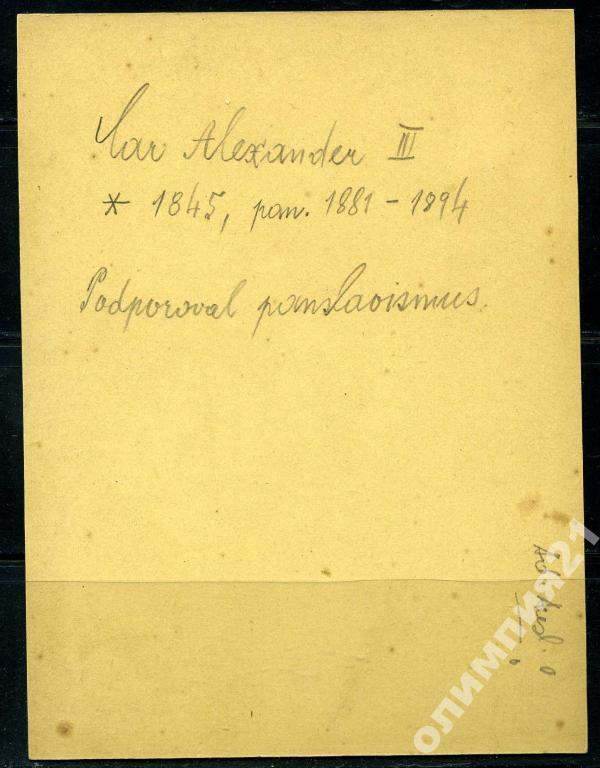 Car Alexander III
* 1845, pan. 1881 - 1894
Podporoval panslavismus.
олимпия21